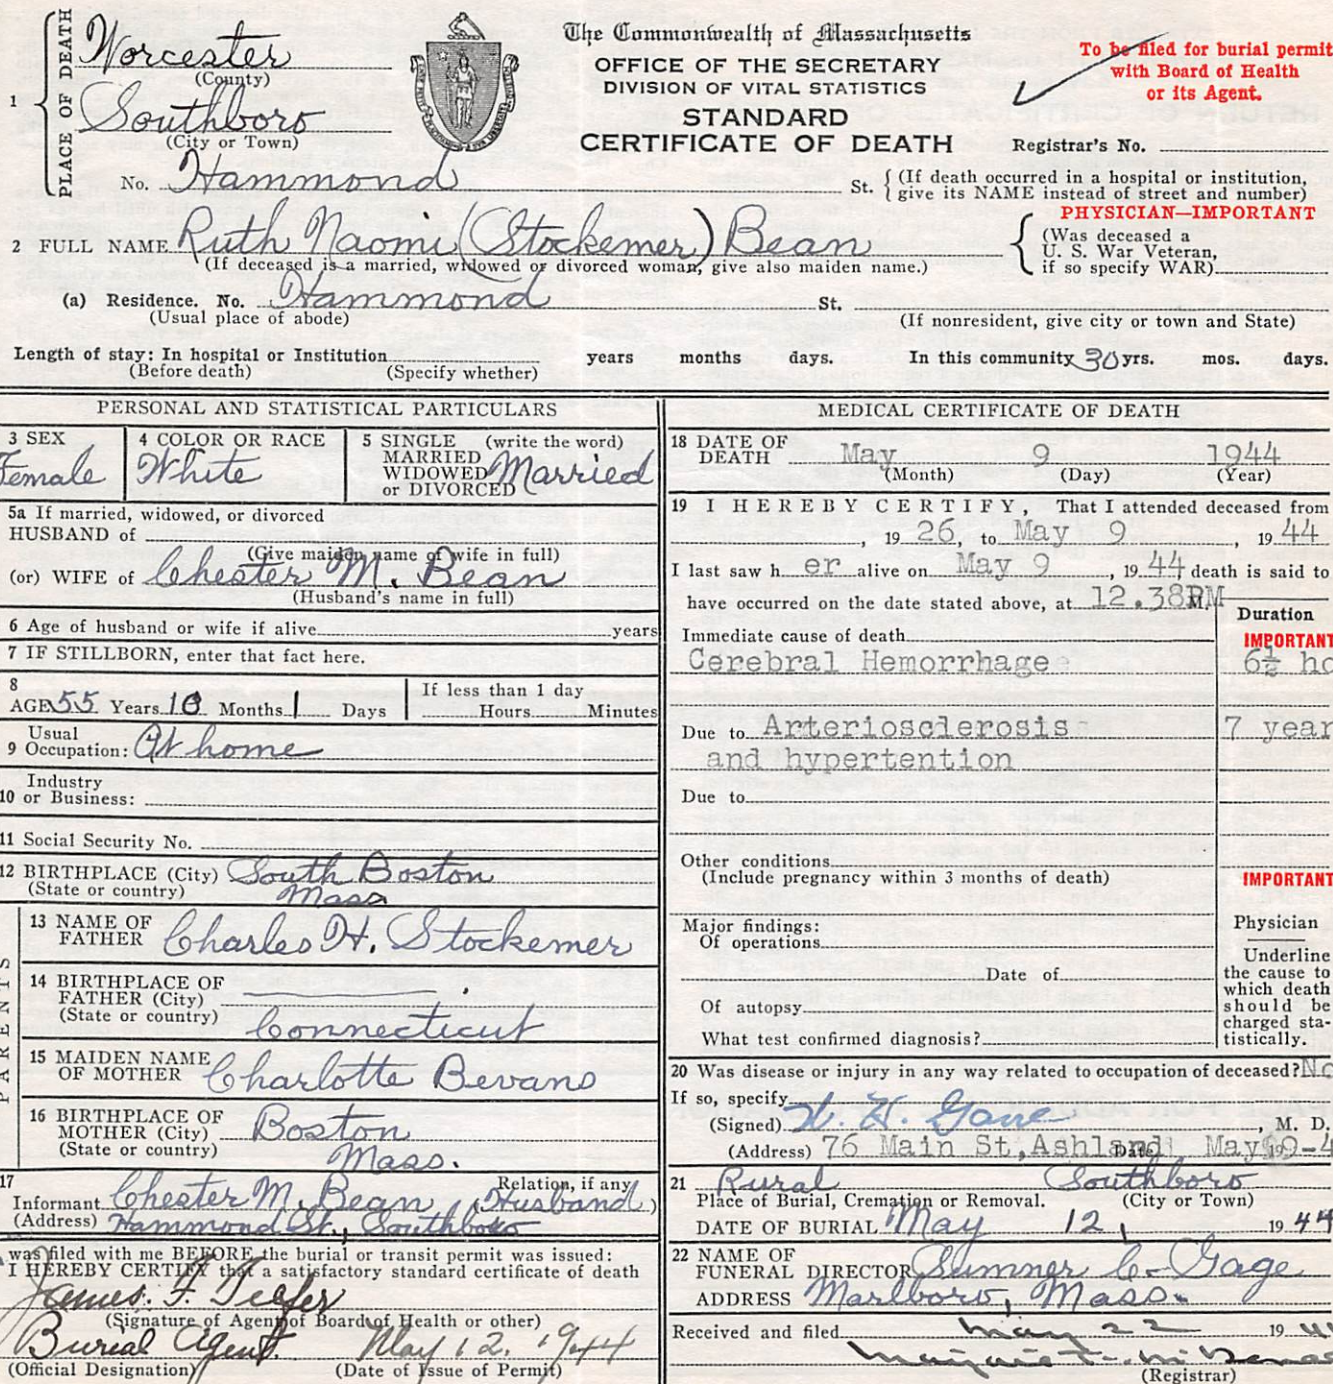 The Commonwealth of Massachusetts
OFFICE OF THE SECRETARY
DIVISION OF VITAL STATISTICS
STANDARD
CERTIFICATE OF DEATH
To be filed for burial permit
with Board of Health
or its Agent.
Registrar's No.
1 PLACE OF DEATH
Worcester
(County)
Southboro
(City or Town)
No. Hammond St. { (If death occurred in a hospital or institution,
give its NAME instead of street and number)
2 FULL NAME Ruth Naomi (Stockemer) Bean
(If deceased is a married, widowed or divorced woman, give also maiden name.)
PHYSICIAN—IMPORTANT
(Was deceased a
U. S. War Veteran,
if so specify WAR)
(a) Residence. No. Hammond St.
(Usual place of abode) (If nonresident, give city or town and State)
Length of stay: In hospital or Institution years months days. In this community 30 yrs. mos. days.
(Before death) (Specify whether)
PERSONAL AND STATISTICAL PARTICULARS
3 SEX
Female
4 COLOR OR RACE
White
5 SINGLE (write the word)
MARRIED
WIDOWED Married
or DIVORCED
5a If married, widowed, or divorced
HUSBAND of
(Give maiden name of wife in full)
(or) WIFE of Chester M. Bean
(Husband's name in full)
6 Age of husband or wife if alive years
7 IF STILLBORN, enter that fact here.
8
AGE 55 Years 10 Months 1 Days
If less than 1 day
Hours Minutes
Usual
9 Occupation: At home
Industry
10 or Business:
11 Social Security No.
12 BIRTHPLACE (City) South Boston
(State or country) Mass
PARENTS
13 NAME OF
FATHER Charles H. Stockemer
14 BIRTHPLACE OF
FATHER (City)
(State or country) Connecticut
15 MAIDEN NAME
OF MOTHER Charlotte Bevans
16 BIRTHPLACE OF
MOTHER (City) Boston
(State or country) Mass.
17 Relation, if any
Informant Chester M. Bean (Husband)
(Address) Hammond St., Southboro
was filed with me BEFORE the burial or transit permit was issued:
I HEREBY CERTIFY that a satisfactory standard certificate of death
James. F. Telfer
(Signature of Agent of Board of Health or other)
Burial Agent. May 12, 1944
(Official Designation) (Date of Issue of Permit)
MEDICAL CERTIFICATE OF DEATH
18 DATE OF
DEATH May 9 1944
(Month) (Day) (Year)
19 I HEREBY CERTIFY, That I attended deceased from
, 19 26, to May 9 , 19 44
I last saw h er alive on May 9 , 19 44, death is said to
have occurred on the date stated above, at 12.38PM
Duration
IMPORTANT
Immediate cause of death
Cerebral Hemorrhage 6½ ho
Due to Arteriosclerosis 7 year
and hypertention
Due to
Other conditions
(Include pregnancy within 3 months of death)
IMPORTANT
Major findings:
Of operations
Date of
Of autopsy
What test confirmed diagnosis?
Physician
Underline
the cause to
which death
should be
charged sta-
tistically.
20 Was disease or injury in any way related to occupation of deceased? No
If so, specify
(Signed) , M. D.
(Address) 76 Main St, Ashland Date May 9-4
21 Rural Southboro
Place of Burial, Cremation or Removal. (City or Town)
DATE OF BURIAL May 12, 19 44
22 NAME OF
FUNERAL DIRECTOR Sumner C. Gage
ADDRESS Marlboro, Mass.
Received and filed May 22 19 44
(Registrar)